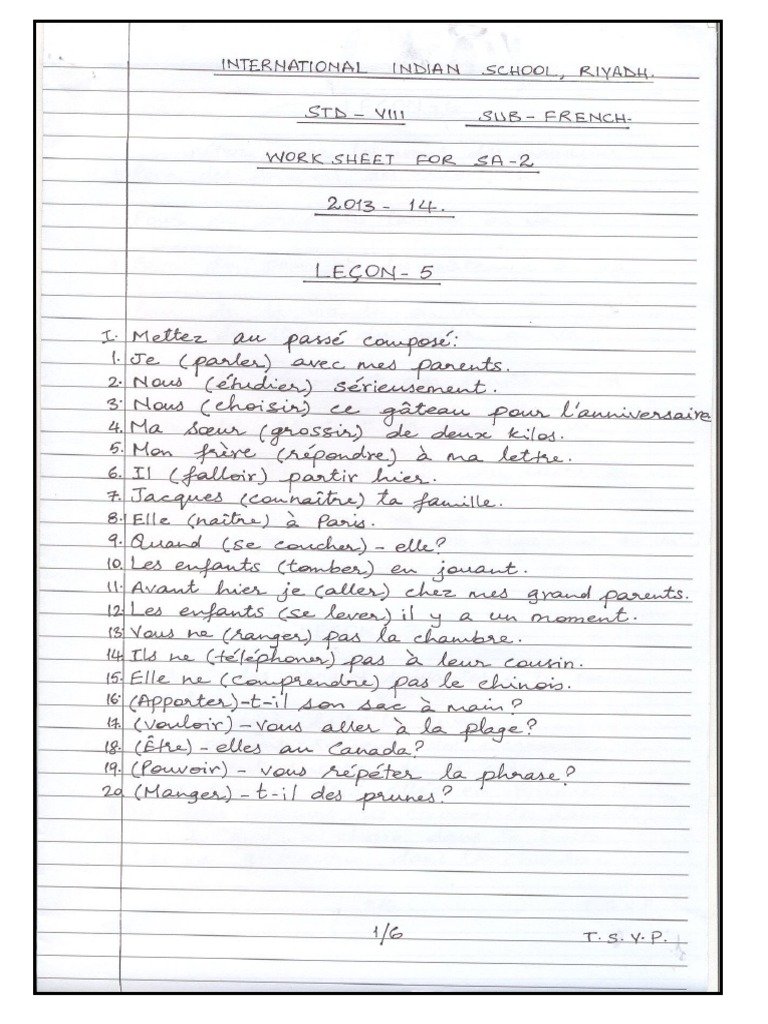 INTERNATIONAL INDIAN SCHOOL, RIYADH.
STD - VIII SUB - FRENCH.
WORK SHEET FOR SA-2
2013 - 14.
LEÇON - 5
I. Mettez au passé composé:
1. Je (parler) avec mes parents.
2. Nous (étudier) sérieusement.
3. Nous (choisir) ce gâteau pour l'anniversaire
4. Ma sœur (grossir) de deux kilos.
5. Mon frère (répondre) à ma lettre.
6. Il (falloir) partir hier.
7. Jacques (connaître) ta famille.
8. Elle (naître) à Paris.
9. Quand (se coucher) - elle?
10. Les enfants (tomber) en jouant.
11. Avant hier je (aller) chez mes grand parents.
12. Les enfants (se lever) il y a un moment.
13. Vous ne (ranger) pas la chambre.
14. Ils ne (téléphoner) pas à leur cousin.
15. Elle ne (comprendre) pas le chinois.
16. (Apporter)-t-il son sac à main?
17. (Vouloir) - vous aller à la plage?
18. (Être) - elles au Canada?
19. (Pouvoir) - vous répéter la phrase?
20. (Manger) - t-il des prunes?
1/6 T. S. V. P.